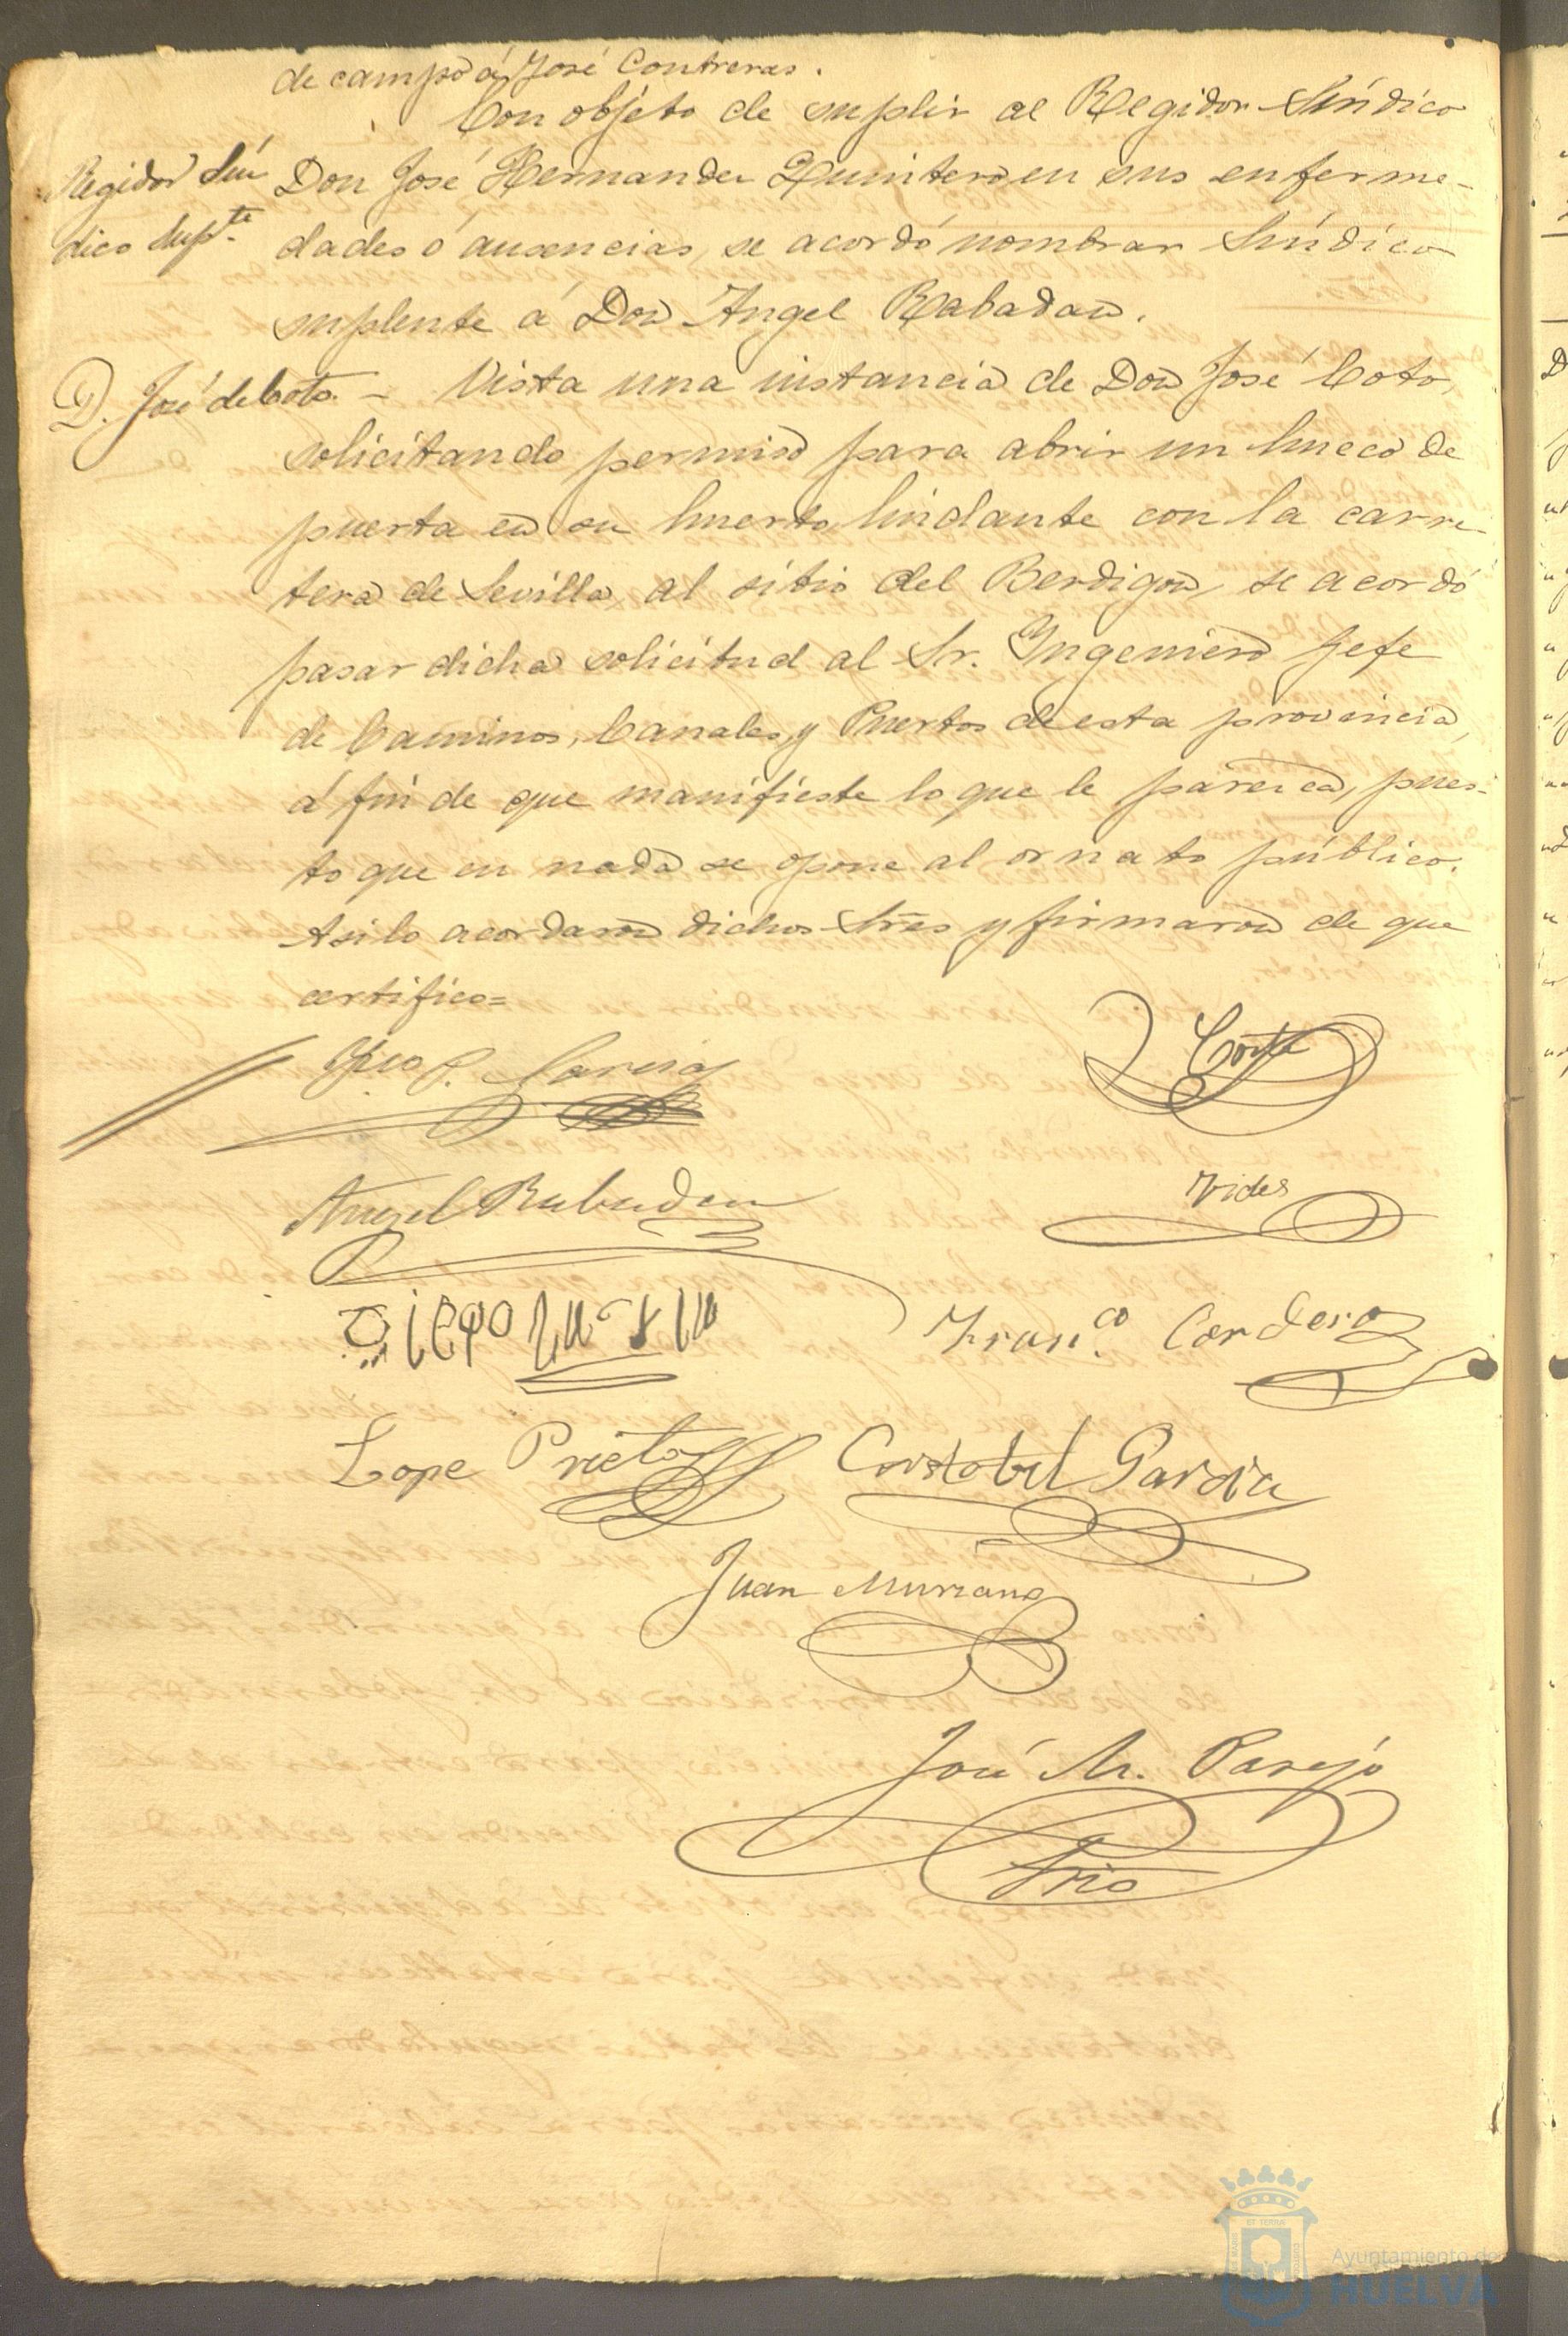 de campo á José Contreras.
Con objeto de suplir al Regidor Síndico
Regidor Sín
dico Supte.
Don José Hernandez Quintero en sus enferme-
dades ó ausencias, se acordó nombrar Síndico
suplente á Don Ángel Rabadan.
D. José de Coto. - Vista una instancia de Don José Coto,
solicitando permiso para abrir un hueco de
puerta en su huerto lindante con la carre-
tera de Sevilla, al sitio del Berdigon, se acordó
pasar dicha solicitud al Sr. Ingeniero Jefe
de Caminos, Canales, y Puertos de esta provincia,
á fin de que manifieste lo que le parezca, pues-
to que en nada se opone al ornato público.
Asi lo acordaron dichos Sres y firmaron de que
certifico=
Garcia
Corte
Angel Rabadan
Vides
Diego
Franco. Cordero
Lope Prieto
Cristobal Garcia
Juan Munzano
José M. Parejo
Srio
Ayuntamiento de
HUELVA